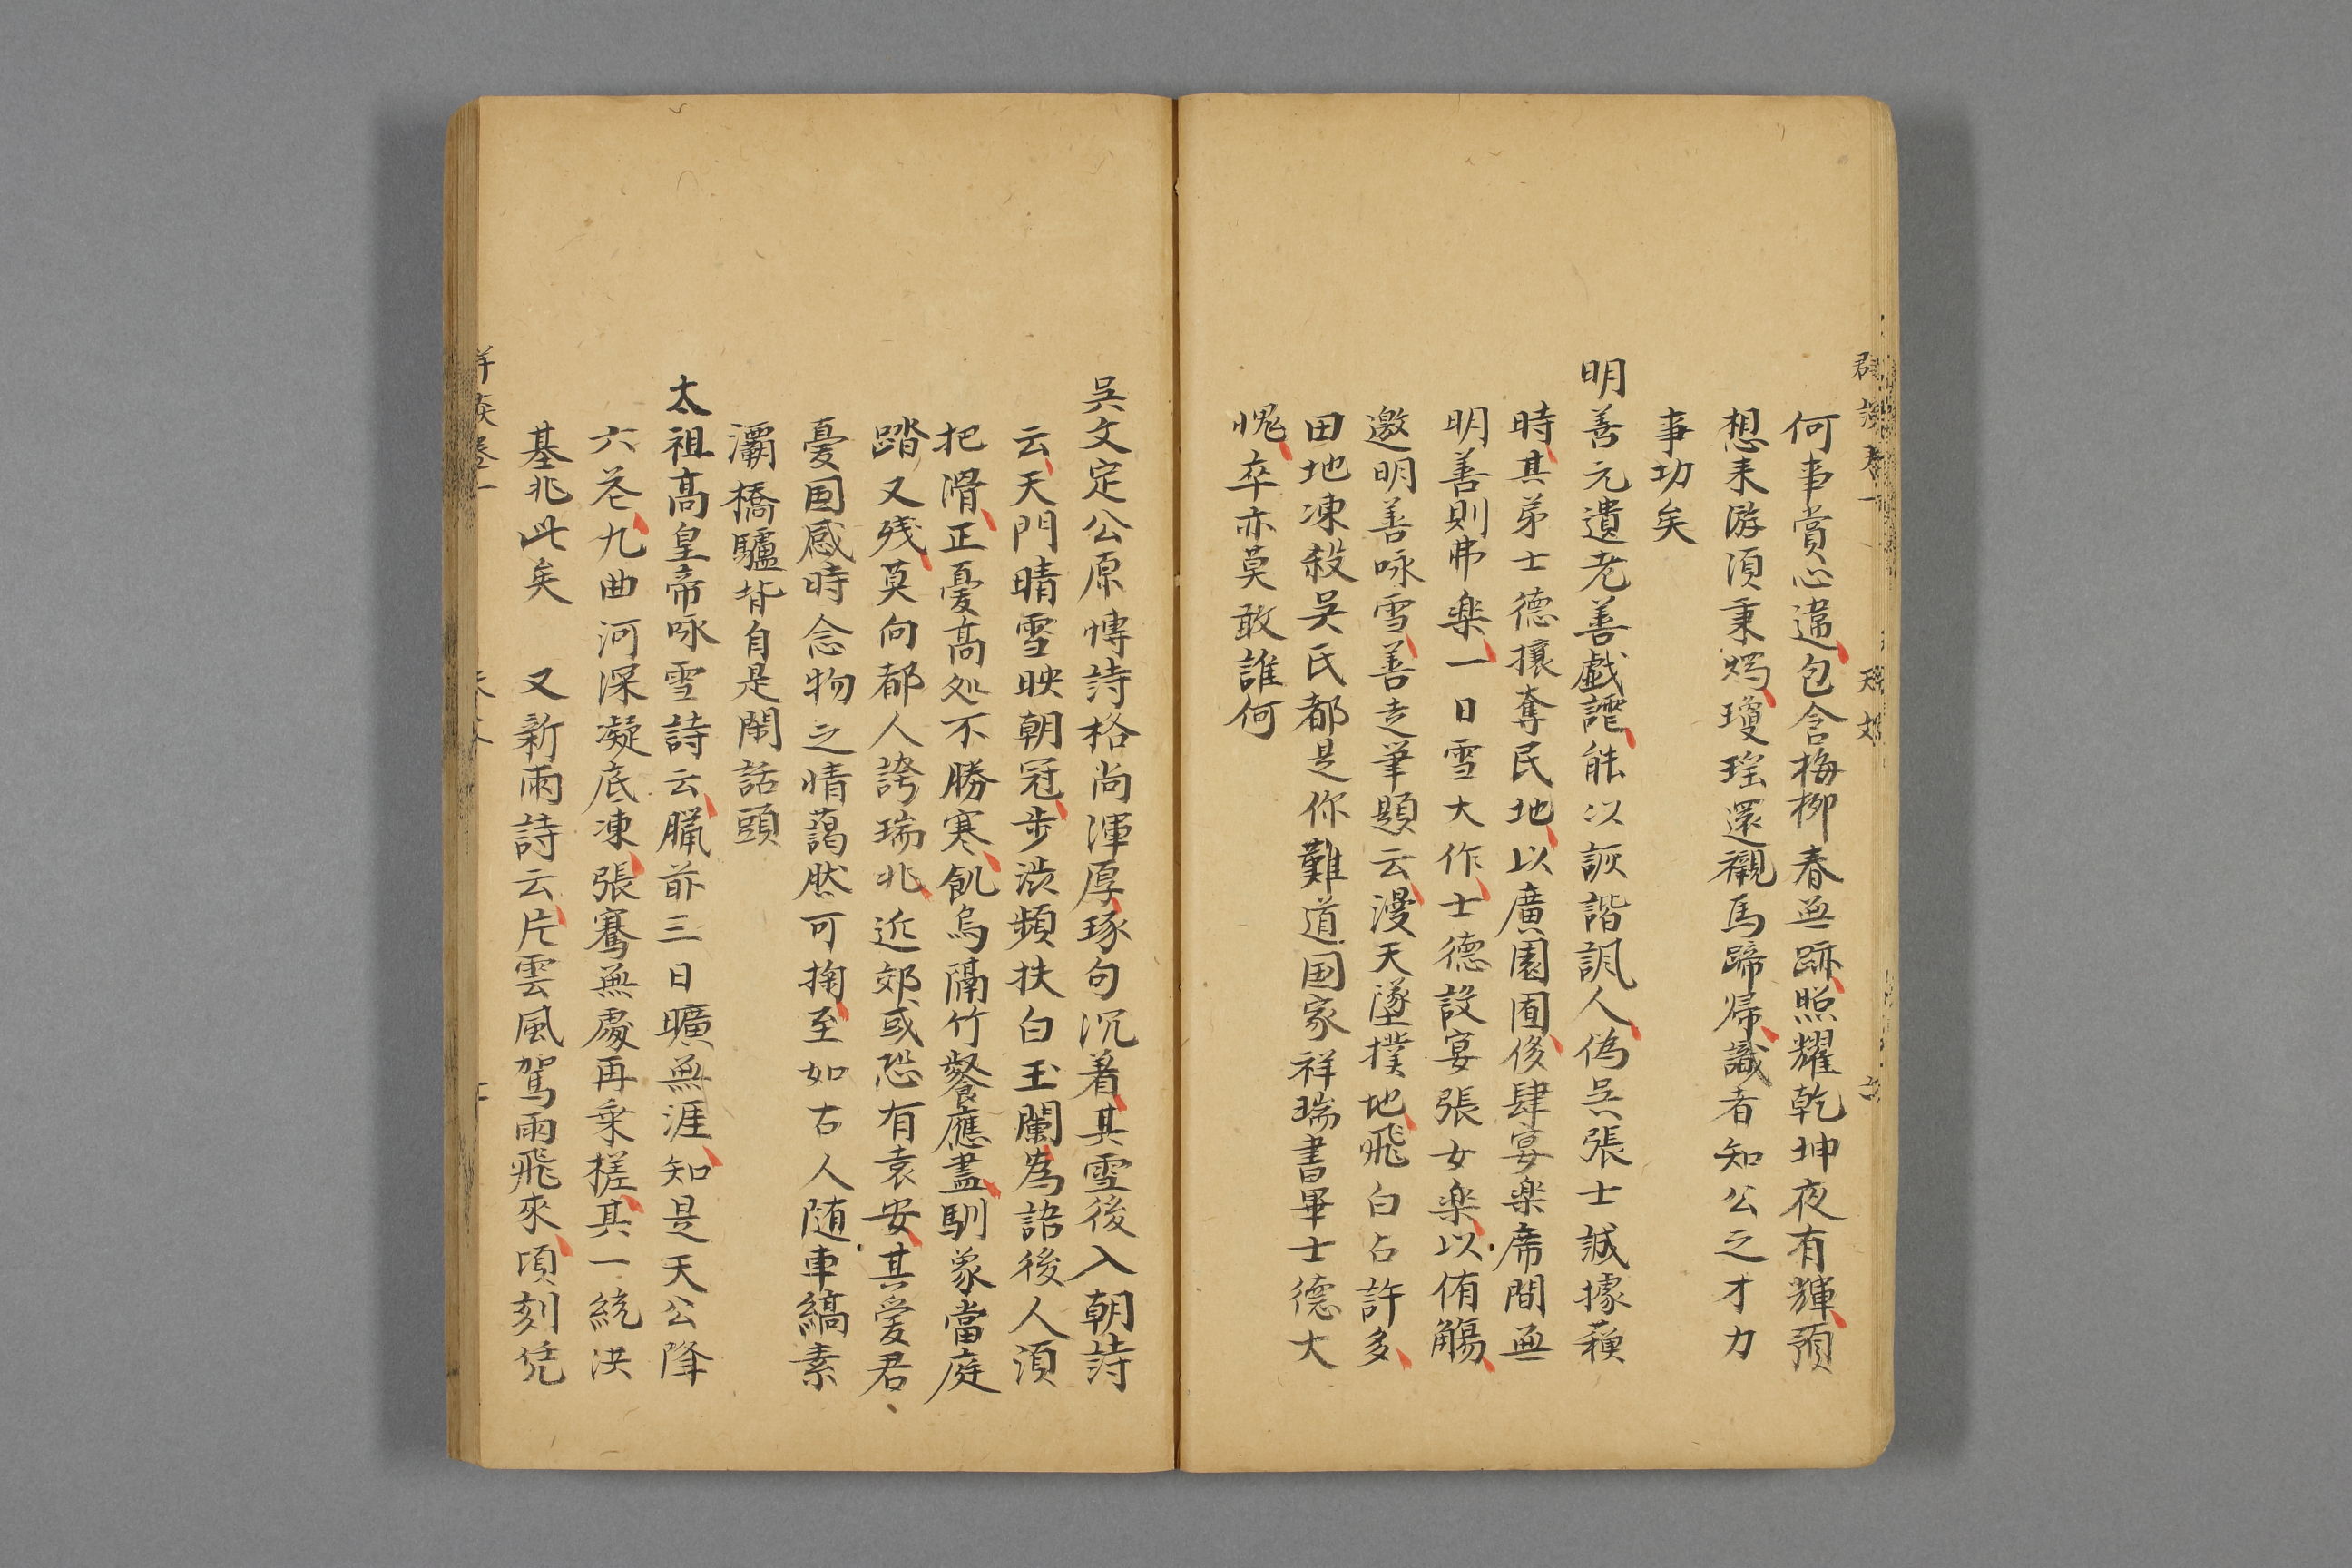 何事賞心違包含梅柳春無跡照耀乾坤夜有輝預
想来游須秉燭瓊瑤還襯馬蹄帰識者知公之才力
事功矣
明善元遺老善戯謔能以詼諧諷人偽吳張士誠據蘓
時其弟士德攘奪民地以廣園囿侈肆宴楽席間無
明善則弗楽一日雪大作士德設宴張女楽以侑觴
邀明善咏雪善走筆題云漫天墜撲地飛白占許多
田地凍殺吳民都是你難道国家祥瑞書畢士德大
愧卒亦莫敢誰何
吳文定公原博詩格尚渾厚琢句沉着其雪後入朝詩
云天門晴雪映朝冠步澁頻扶白玉闌為語後人須
把滑正憂高処不勝寒飢烏隔竹餐應盡馴象當庭
踏又残莫向都人誇瑞兆近郊或恐有袁安其爱君
憂国感時念物之情藹然可掬至如古人随車縞素
灞橋驢背自是閑話頭
太祖高皇帝咏雪詩云臘前三日曠無涯知是天公降
六花九曲河深凝底凍張騫無處再乗槎其一統洪
基兆此矣 又新雨詩云片雲風駕雨飛來頃刻凭